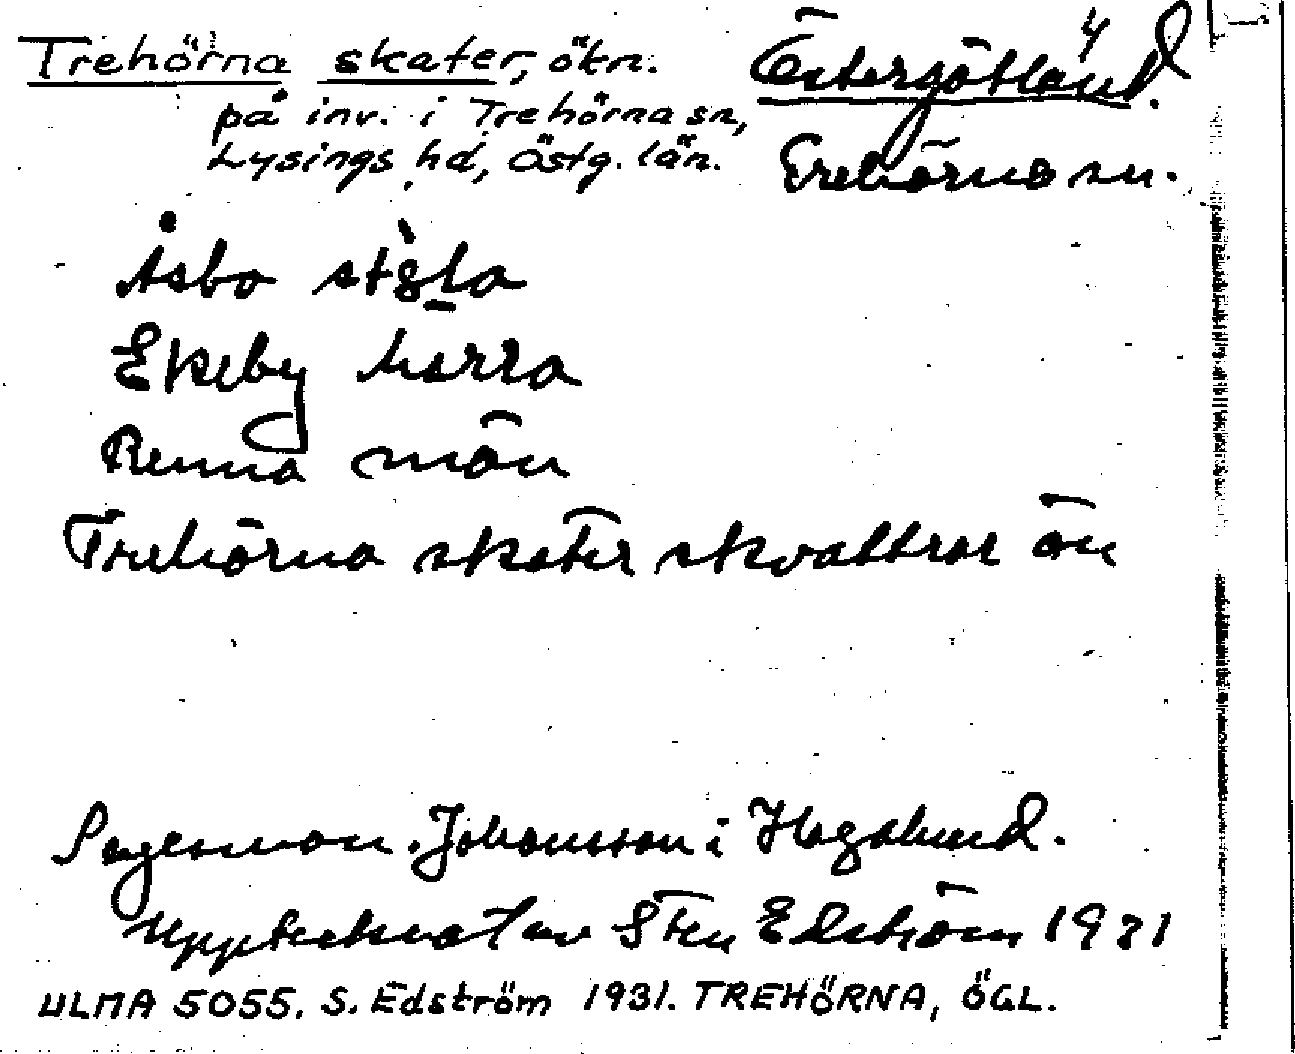 Trehörna skater, ökn.
på inv. i Trehörna sn,
Lysings hd, Östg. län.
4
Östergötland.
Trehörna sn.
Åsbo
Ekeby herra
Renna män
Trehörna skater skvattrar än
Sagesman. Johansson i Hagalund.
Upptecknat av Sten Edström 1931
ULMA 5055. S. Edström 1931. TREHÖRNA, ÖGL.